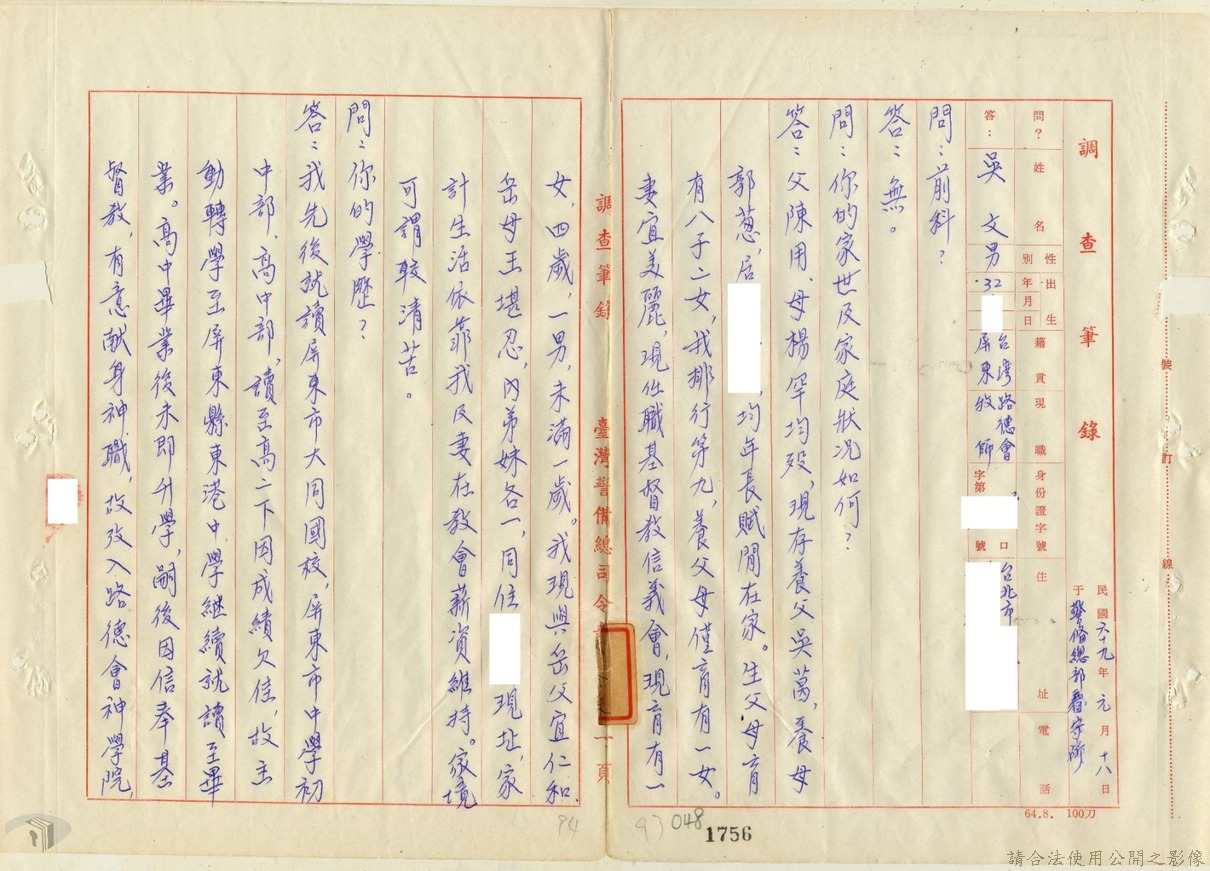 調查筆錄
民國六十九年元月十八日
于警備總部看守所
問？姓名 性別 出生年月日 籍貫 現職 身份證字號 住址 電話
答：吳文 男 32. 台灣屏東 路德會牧師 字第 號 台北市
問：前科？
答：無。
問：你的家世及家庭狀況如何？
答：父陳用、母楊罕均歿，現存養父吳萬，養母
郭蔥，居 ，均年長賦閒在家。生父母育
有八子二女，我排行第九，養父母僅育有一女。
妻宜美麗，現任職基督教信義會，現育有一
調查筆錄 臺灣警備總司令 一頁
女，四歲，一男，未滿一歲。我現與岳父宜仁和.
岳母王堪忍，內弟妹各一，同住 現址，家
計生活依靠我及妻在教會薪資維持。家境
可謂較清苦。
問：你的學歷？
答：我先後就讀屏東市大同國校，屏東市中學初
中部、高中部，讀至高二下因成績欠佳，故主
動轉學至屏東縣東港中學繼續就讀至畢
業。高中畢業後未即升學，嗣後因信奉基
督教，有意献身神職，故改入路德會神學院，
裝
訂
線
64.8. 100刀
94
93
048
1756
請合法使用公開之影像